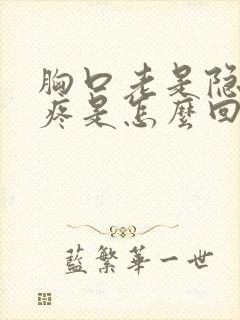 胸口老是隐
疼是怎麽回
藍繁華一世